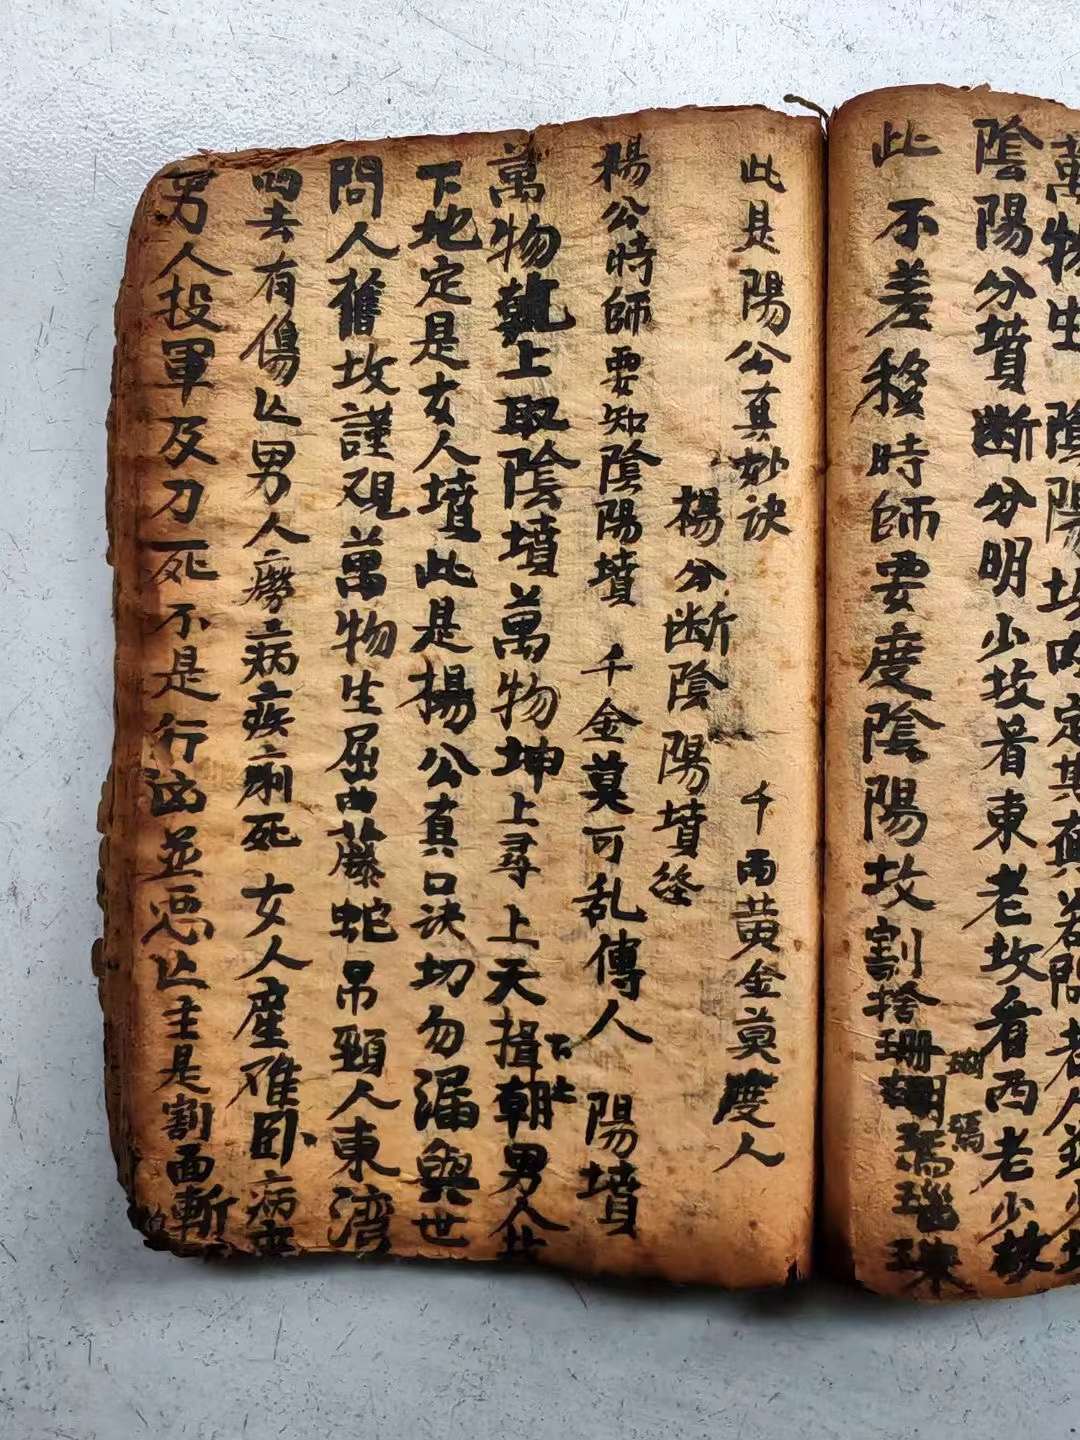 萬物生陰陽坟
陰陽分墳断分明少坟着東老坟看西老少故
此不差移時師要度陰陽坟割捨珊瑚瑪瑙珠
瑚 瑪
此是陽公真妙诀 千両黄金莫度人
楊公断陰陽墳後
楊公時師要知陰陽墳 千金莫可乱傳人 陽墳
萬物乾上取陰墳萬物坤上尋上天揖朝男人
下土
下地定是女人墳此是楊公真口诀切勿漏與世
問人舊坟謹观萬物生屈曲藤蛇吊頸人東湾
四去有傷亡男人癆病疾痢死女人産难卧病
男人投軍及刀死不是行凶並恶亡主是割面斬